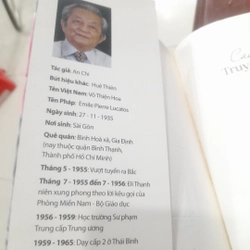 Tác giả: An Chi
Bút hiệu khác: Huệ Thiên
Tên Việt Nam: Võ Thiện Hoa
Tên Pháp: Emile Pierre Lucatos
Ngày sinh: 27 - 11 - 1935
Nơi sinh: Sài Gòn
Quê quán: Bình Hoà xã, Gia Định
(nay thuộc quận Bình Thạnh,
Thành phố Hồ Chí Minh)
Tháng 5 - 1955: Vượt tuyến ra Bắc
Tháng 7 - 1955 đến 7 - 1956: Đi Thanh
niên xung phong theo lời kêu gọi của
Phòng Miền Nam - Bộ Giáo dục
1956 - 1959: Học trường Sư phạm
Trung cấp Trung ương
1959 - 1965: Dạy cấp 2 ở Thái Bình
Truy